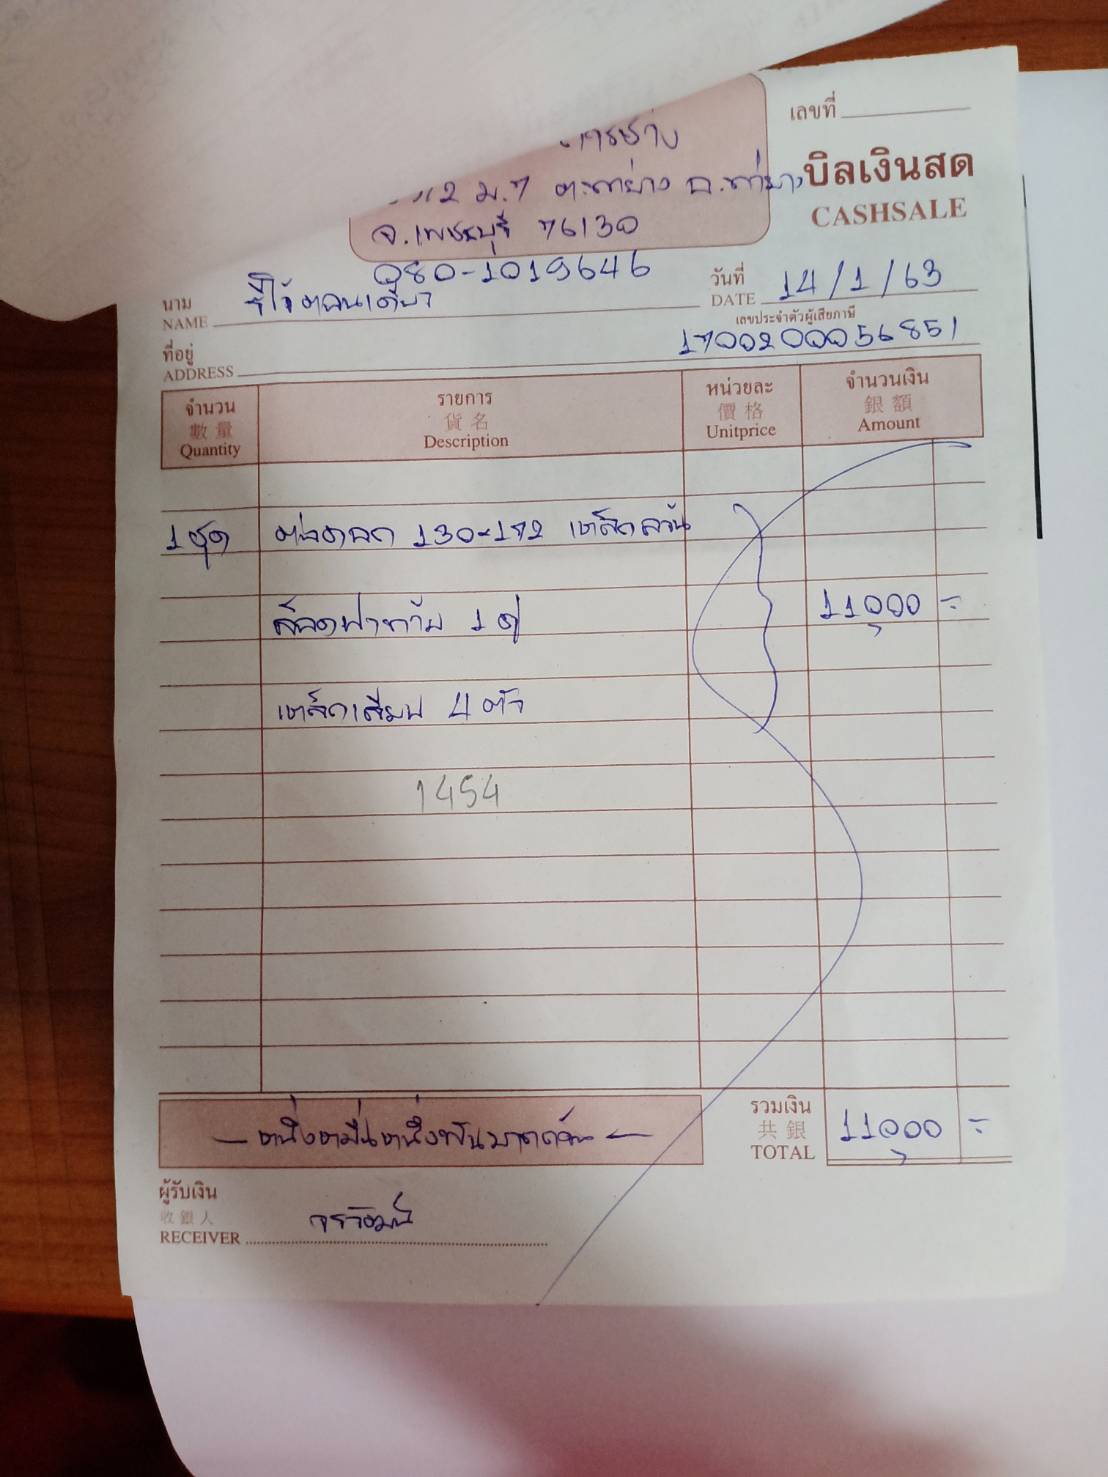 เลขที่
การช่าง
บิลเงินสด
CASHSALE
12 ม.7 ต.ท่ายาง อ.ท่ายาง
จ.เพชรบุรี 76130
080-1019646
นาม
NAME
วันที่
DATE 14/1/63
เลขประจำตัวผู้เสียภาษี
1700200056851
ที่อยู่
ADDRESS
จำนวน รายการ หน่วยละ จำนวนเงิน
數量 貨名 價格 銀額
Quantity Description Unitprice Amount
1 ชุด 130-172 เหล็ก
1 คู่ 11,000 =
เหล็กเสียบ 4 ตัว
1454
รวมเงิน
共銀
TOTAL 11,000 =
— หนึ่งหมื่นหนึ่งพันบาทถ้วน —
ผู้รับเงิน
收銀人
RECEIVER